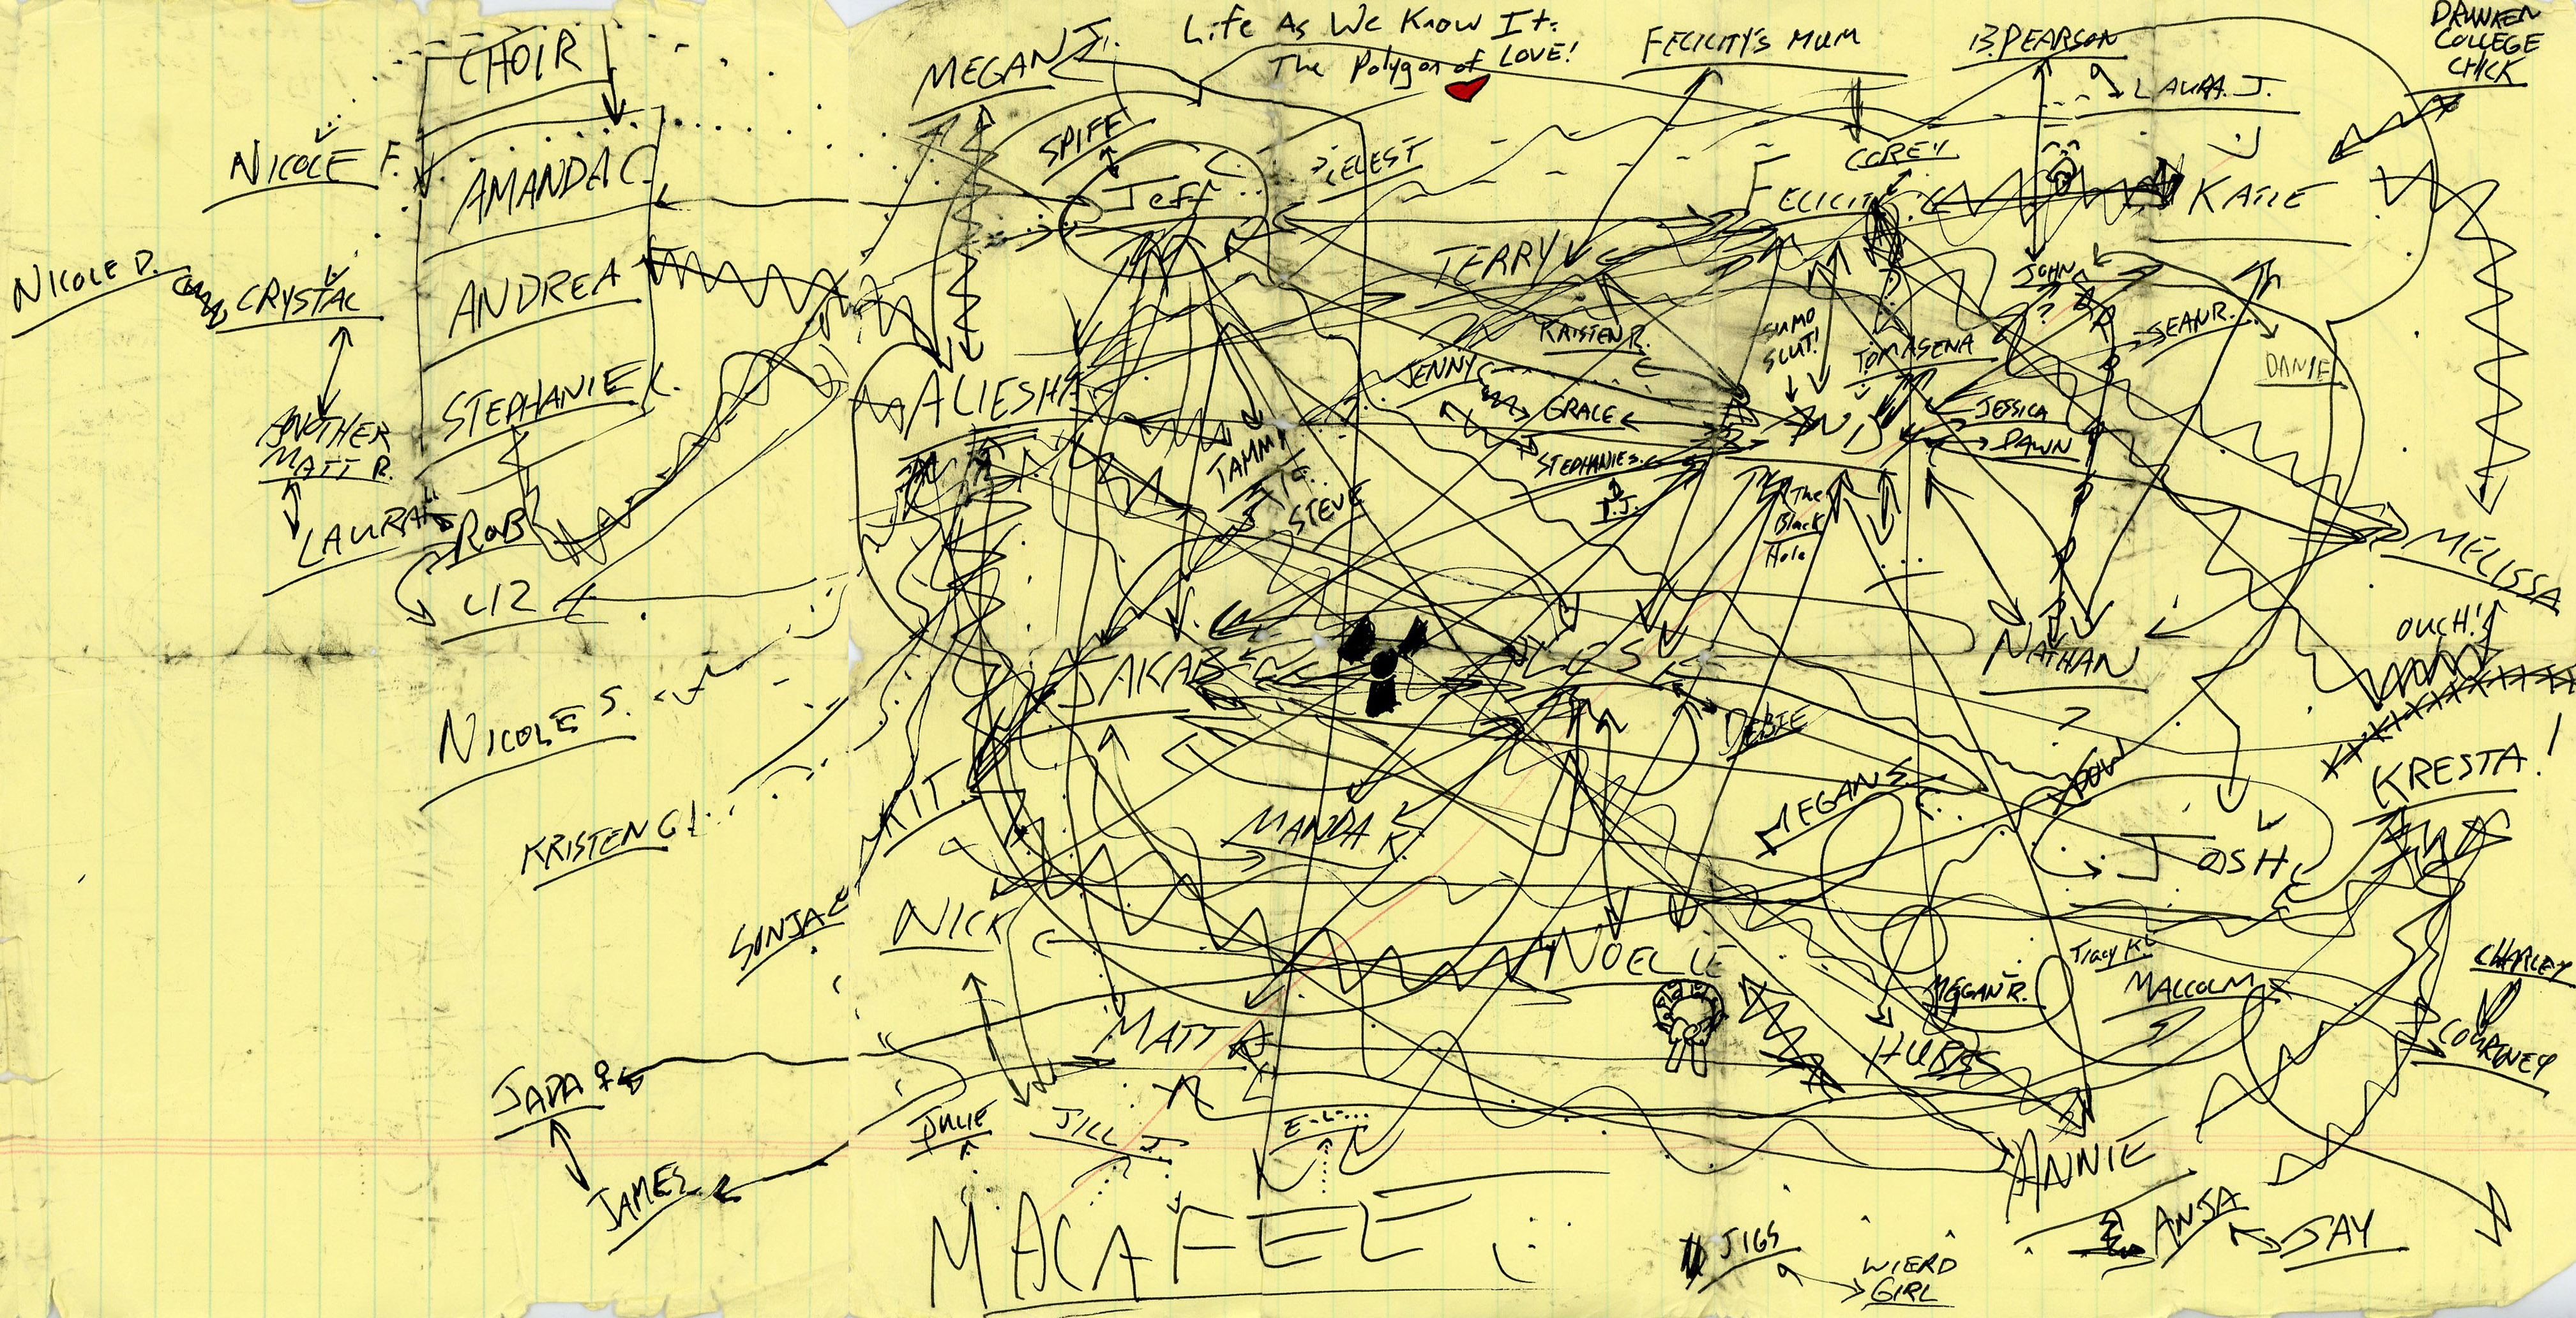 Life As We Know It:
The Polygon of LOVE!
CHOIR
MEGAN J.
FELICITY'S MUM
B. PEARSON
DRUNKEN
COLLEGE
CHICK
LAURA. J.
NICOLE F.
AMANDA C.
SPIFF
Jeff
COREY
KATIE
NICOLE D.
CRYSTAL
ANDREA
TERRY
JOHN
SEAN R.
DANIE
KRISTEN R.
SUMO
SLUT!
TOMASENA
STEPHANIE K.
ALIESHA
JENNY
GRACE
JESSICA
DAWN
ANOTHER
MATT R.
TAMMY
STEVE
STEPHANIE S.
T.J.
The
Black
Hole
LAURA
ROB
LIZ
MELISSA
OUCH!
JAKAB
NATHAN
?
DEBIE
NICOLE S.
KIT
KRESTA!
POW!
MEGAN S.
KRISTEN G.
MANDA K.
JOSH
SONJA
NICK
NOELLE
MEGAN R.
Tracy K.
MALCOLM
CHARLEY
COURTNEY
MATT
HUBBS
JADA ♀
JULIE
JILL J.
E-L-...
ANNIE
JAMES
MACAFEE
JIGS
WIERD
GIRL
ANJA
JAY